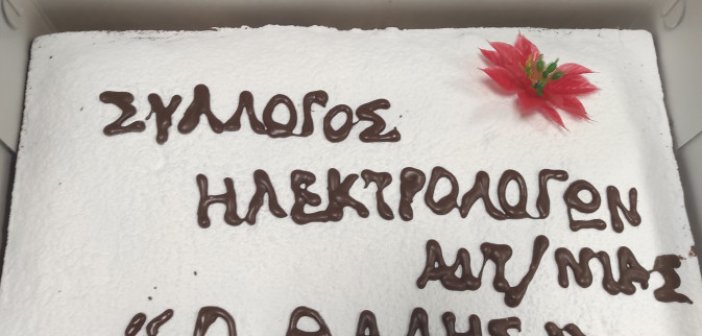 ΣΥΛΛΟΓΟΣ
ΗΛΕΚΤΡΟΛΟΓΩΝ
ΑΙΤ/ΝΙΑΣ
"Ο ΘΑΛΗΣ"